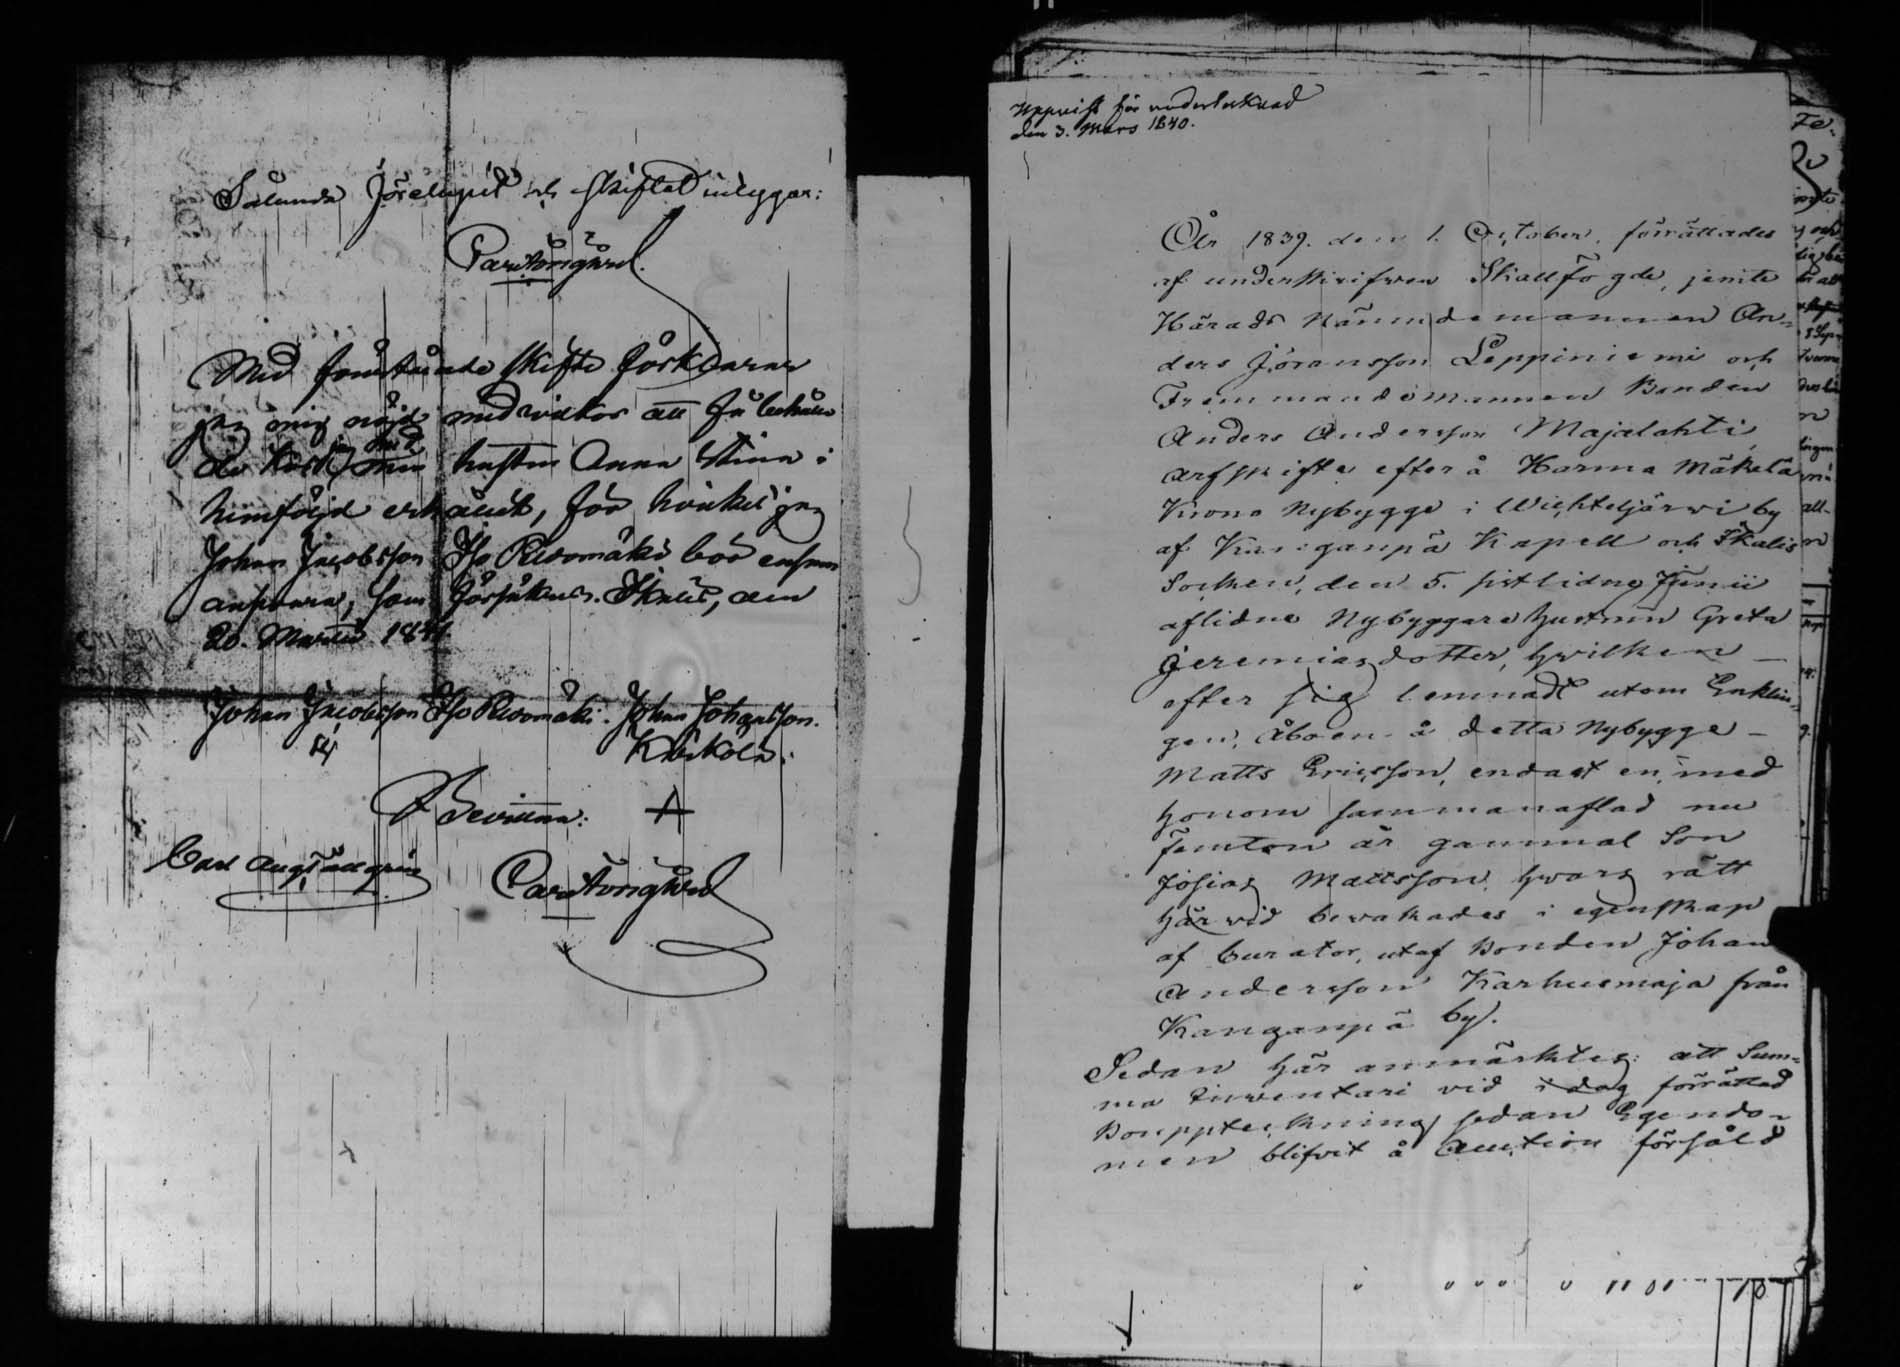 Sålunda förelupit och skiftad intygar:
Med förestående skifte förklarar
jag mig nöjd med vilkor att få behålla
de hvad jag med min hustru Anna Stina i
hemföljd erhållit, för hvilket jag
Johan Jacobsson Iso Riwomäki bör ensam
ansvara, som försäkras. Ikalis, den
20. Martii 1841.
Johan Jacobsson Iso Riwomäki. Johan Johansson
Kivikoln.
Bevittna:
Carl Aug
Uppvist för undertecknad
den 3. Mars 1840.
År 1839. den 1. October, förrättades
af underskrifven Skallfogde, jemte
Härads Nämndemannen An-
ders Jöransson Leppiniemi och
Fremmandemannen Bonden
Anders Andersson Majalahti
arfskifte efter å Harma Mäkelä
Krono Nybygge i Wiehteljärwi by
af Kanganpä Kapell och Ikalis
Socken, den 5. sistlidne Junii
aflidne Nybyggare hustrun Greta
Jeremiasdotter, hvilken
efter sig lemnadt utom Enklin-
gen, Åboen å detta Nybygge
Matts Ericsson, endast en, med
honom sammanaflad nu
femton år gammal Son
Josias Mattsson, hvars rätt
härvid bevakades i egenskap
af Curator, utaf Bonden Johan
Andersson Karhusmaja från
Kanganpä by.
Sedan här anmärktes: att Sum-
ma Inventarii vid i dag förrättad
Bouppteckning sedan Egendo-
men blifvit å Auction försåld